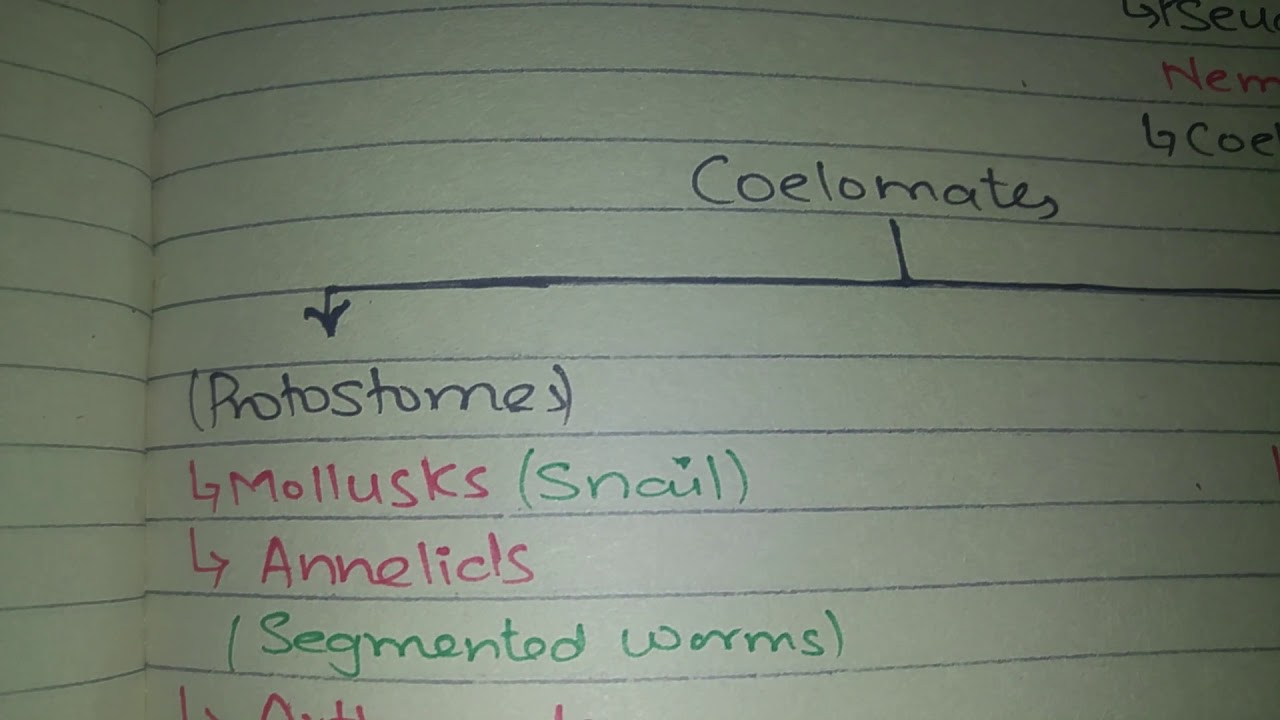 Coelomates
(Protostomes)
↳ Mollusks (Snail)
↳ Annelids
(Segmented worms)